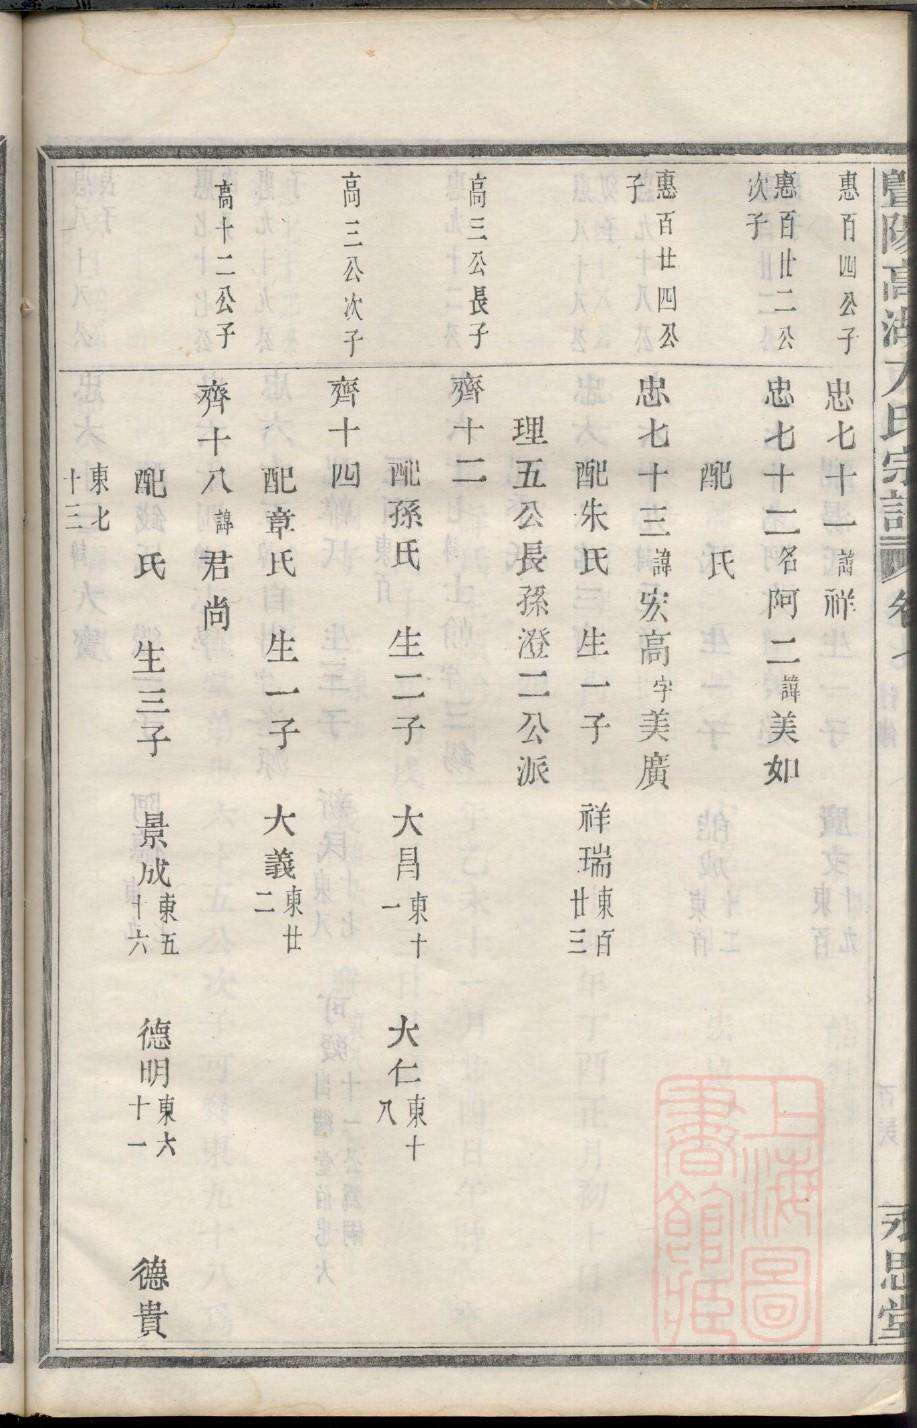 暨陽高湖方氏宗譜 卷七 永思堂
惠百四公子
忠七十一諱祥
惠百廿二公
次子
忠七十二名阿二諱美如
配 氏
惠百廿四公
子
忠七十三諱宏高字美廣
配朱氏 生一子 祥瑞東百廿三
理五公長孫澄二公派
高三公長子
齊十二
配孫氏 生二子 大昌東十一 大仁東十八
高三公次子
齊十四
配章氏 生一子 大義東廿二
高十二公子
齊十八諱君尚
配 氏 生三子 景成東五十六 德明東六十一 德貴
東七十三
上海圖書館藏